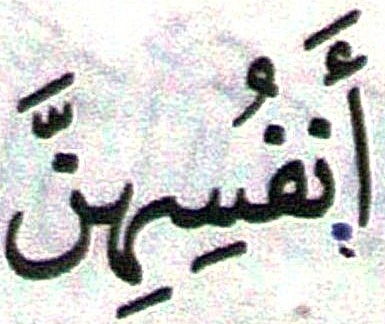 أَنفُسِهِنَّ